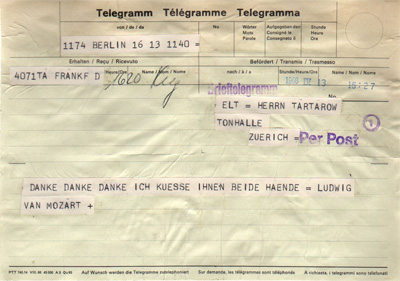 Telegramm Télégramme Telegramma
von / de / da
Wörter Mots Parole
Aufgegeben den Consigné le Consegnato il
Stunde Heure Ora
1174 BERLIN 16 13 1140 =
Erhalten / Reçu / Ricevuto
Befördert / Transmis / Trasmesso
4071TA FRANKF D
Heure/Ore
Name / Nom / Nome
nach / à / a
Stunde/Heure/Ora
Name / Nom / Nome
1620
13
16:27
Brieftelegramm
ELT = HERRN TARTAROW
TONHALLE
ZUERICH =
Per Post
1
DANKE DANKE DANKE ICH KUESSE IHNEN BEIDE HAENDE = LUDWIG
VAN MOZART +
Auf Wunsch werden die Telegramme telephoniert
Sur demande, les télégrammes sont téléphonés
A richiesta, i telegrammi sono telefonati